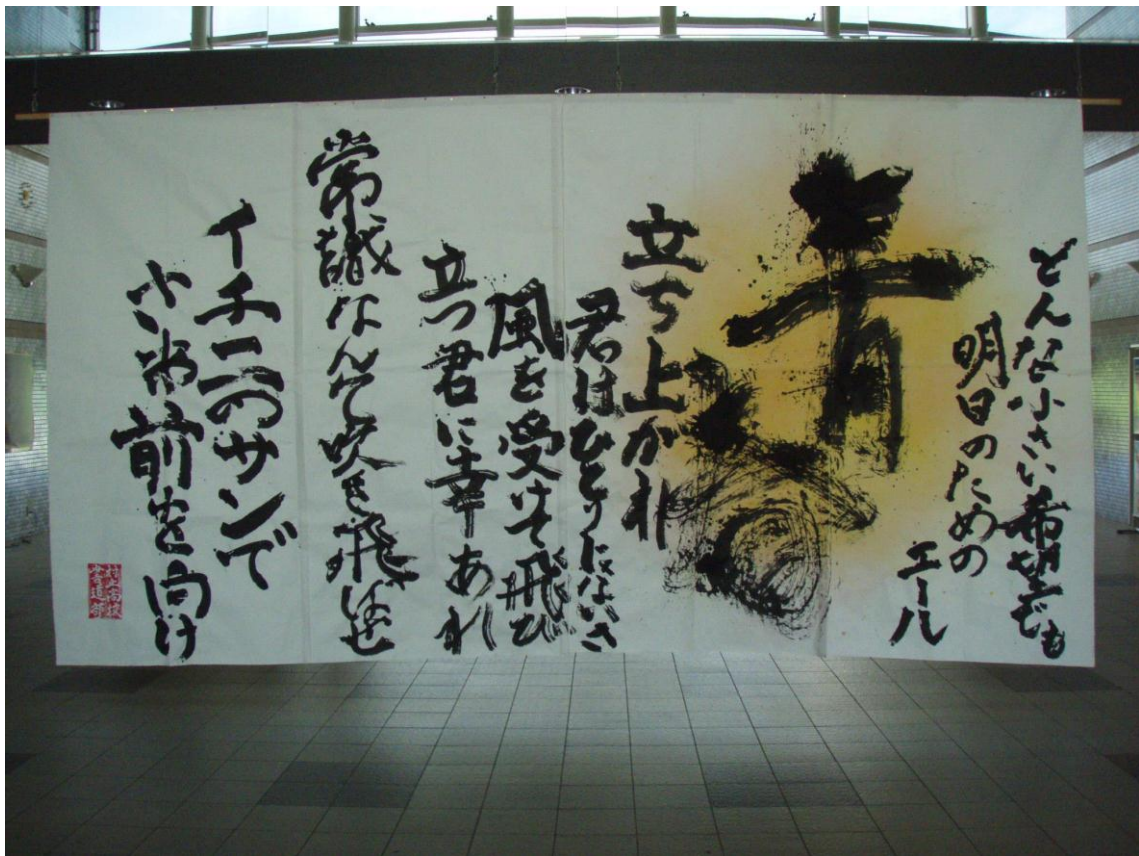 どんな小さい希望でも
明日のための
エール
立ち上がれ
君はひとりじゃないさ
風を受けて飛び
立つ君に幸あれ
常識なんて吹き飛ばせ
イチ二のサンで
さあ前を向け